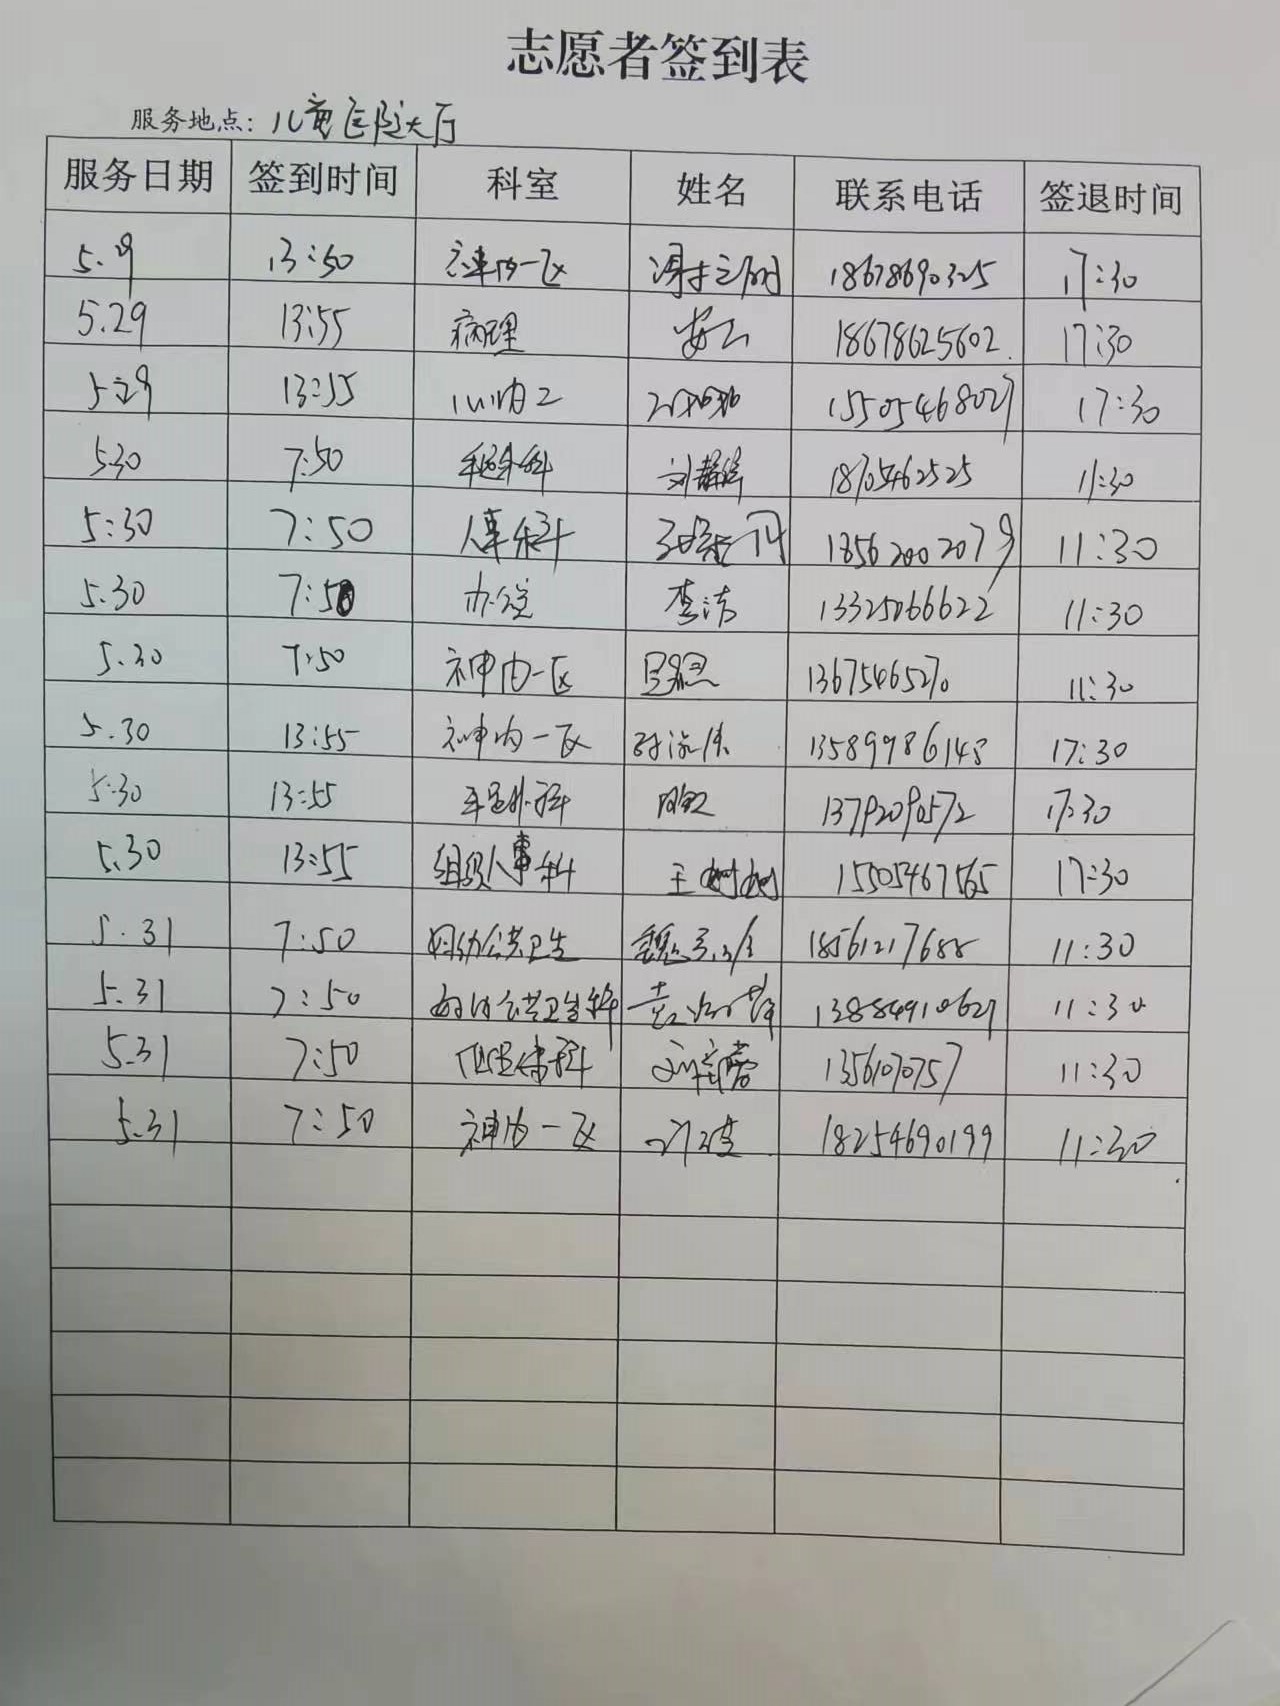 志愿者签到表
服务地点：儿童医院大厅
服务日期 签到时间 科室 姓名 联系电话 签退时间
5.9 13:50 神内一区 18678690325 17:30
5.29 13:55 病理 18678625602. 17:30
5.29 13:55 15505468027 17:30
5.30 7:50 刘静 18705462525 11:30
5:30 7:50 人事科 18562002079 11:30
5.30 7:50 办公室 李洁 13325066622 11:30
5.30 7:50 神内一区 13675465270 11:30
5.30 13:55 神内一区 13589986148 17:30
5.30 13:55 手足外科 13792090572 17:30
5.30 13:55 组织人事科 王树树 15505467565 17:30
5.31 7:50 妇幼公共卫生 18561217688 11:30
5.31 7:50 妇幼公共卫生科 13884910627 11:30
5.31 7:50 13561070757 11:30
5.31 7:50 神内一区 18254690199 11:30